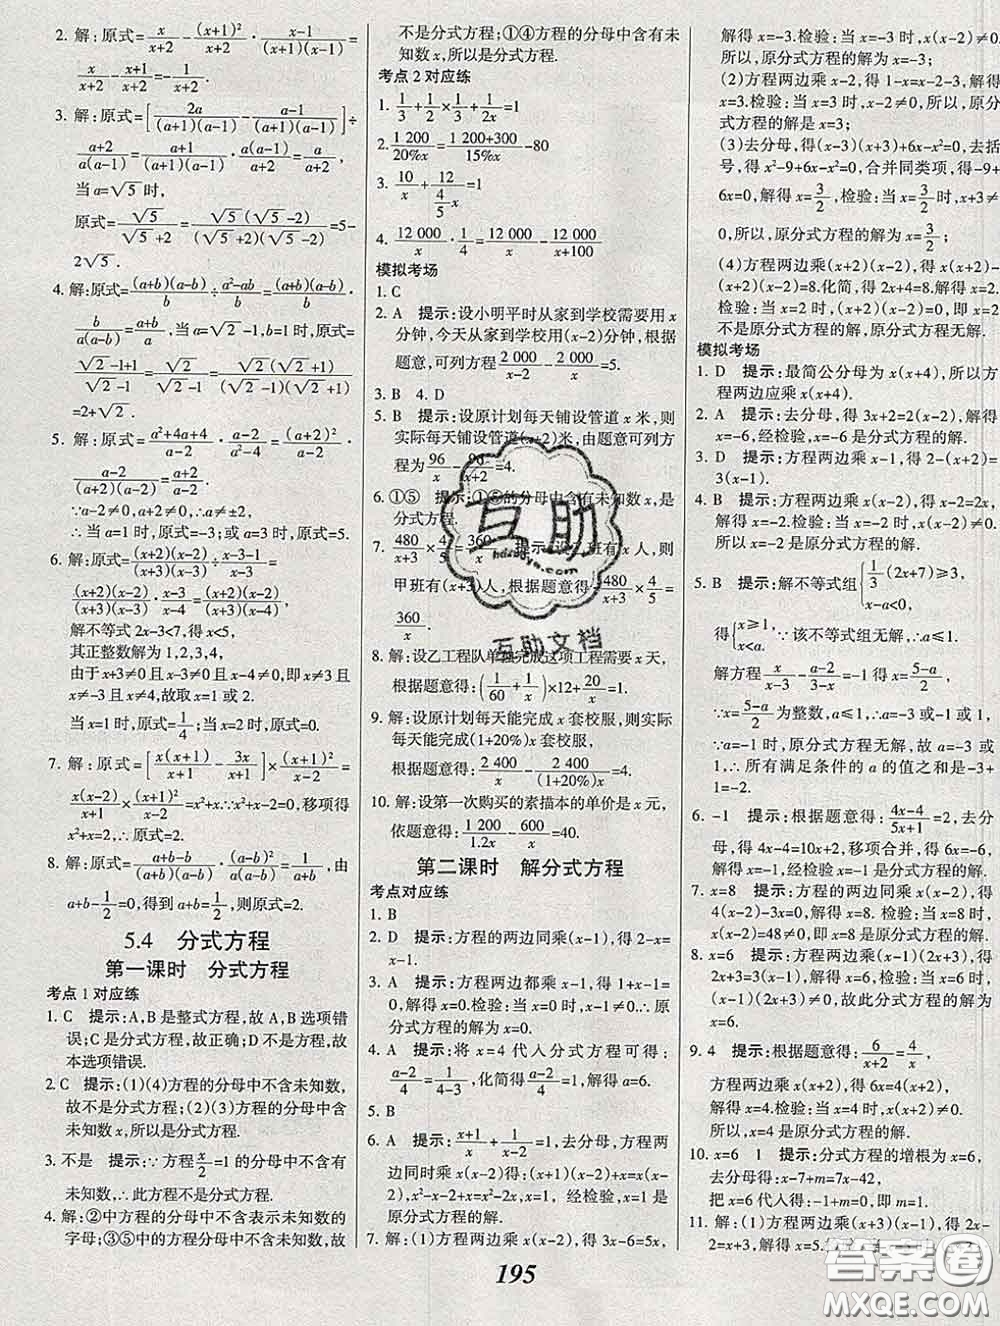 2. 解:原式=x/(x+2)-(x+1)²/(x+2)·(x-1)/((x+1)(x-1))=
x/(x+2)-(x+1)/(x+2)=-1/(x+2).
3. 解:原式=[2a/((a+1)(a-1))-(a-1)/((a+1)(a-1))]÷
(a+2)/(a(a-1))=(a+1)/((a+1)(a-1))·a(a-1)/(a+2)=a/(a+2).
当a=√5时,
原式=√5/(√5+2)=√5(√5-2)/((√5+2)(√5-2))=5-
2√5.
4. 解:原式=(a+b)(a-b)/b÷(a²-ab)/b=(a+b)(a-b)/b·
b/(a(a-b))=(a+b)/a,当a=√2-1,b=1时,原式=
(√2-1+1)/(√2-1)=√2/(√2-1)=√2(√2+1)/((√2-1)(√2+1))
=2+√2.
5. 解:原式=(a²+4a+4)/(a-2)·(a-2)/(a²-4)=(a+2)²/(a-2)·
(a-2)/((a+2)(a-2))=(a+2)/(a-2).
∵a-2≠0,a+2≠0,∴a≠±2,
∴当a=1时,原式=-3;或当a=3时,原式=5.
6. 解:原式=(x+2)(x-2)/(x-3)÷(x-3-1)/(x-3)=
(x+2)(x-2)/(x-3)·(x-3)/(x-4)=(x+2)(x-2)/(x-4).
解不等式2x-3<7,得x<5,
其正整数解为1,2,3,4,
由于x+3≠0且x-3≠0且x-4≠0,所以x
≠-3且x≠3且x≠4,故取x=1或2.
当x=1时,原式=1/4;当x=2时,原式=0.
7. 解:原式=[x(x+1)/(x+1)-3x/(x+1)]×(x+1)²/(x-2)=
x(x-2)/(x+1)×(x+1)²/(x-2)=x²+x.∵x²+x-2=0,移项得
x²+x=2,∴原式=2.
8. 解:原式=(a+b-b)/((a+b)(a-b))·(a-b)²/a(a-b)=1/(a+b),由
a+b-1/2=0,得到a+b=1/2,则原式=2.
5.4 分式方程
第一课时 分式方程
考点1对应练
1. C 提示:A,B是整式方程,故A,B选项错
误;C是分式方程,故正确;D不是方程,故
本选项错误.
2. C 提示:(1)(4)方程的分母中不含未知数,
故不是分式方程;(2)(3)方程的分母中含未知
数x,所以是分式方程.
3. 不是 提示:∵方程x/2=1的分母中不含有
未知数,∴此方程不是分式方程.
4. 解:②中方程的分母中不含表示未知数的
字母;③⑤中的方程分母中不含有未知数,故
不是分式方程;①④方程的分母中含有未
知数x,所以是分式方程.
考点2对应练
1. 1/3+1/2×1/3+1/2x=1
2. 1 200/20%x=(1 200+300)/15%x-80
3. 10/x+12/(4/5x)=1
4. 12 000/x·1/4=12 000/x-12 000/(x+100)
模拟考场
1. C
2. A 提示:设小明平时从家到学校需要用x
分钟,今天从家到学校用(x-2)分钟,根据
题意,可列方程2 000/(x-2)-2 000/x=5.
3. B 4. D
5. B 提示:设原计划每天铺设管道x米,则
实际每天铺设管道(x+2)米,由题意可列方
程为96/x-96/(x+2)=4.
6. ①⑤ 提示:①⑤的分母中含有未知数x,是
分式方程.
7. 480/(x+3)×4/5=360/x 提示:设乙班有x人,则
甲班有(x+3)人,根据题意得:480/(x+3)×4/5=
360/x.
8. 解:设乙工程队单独完成这项工程需要x天,
根据题意得:(1/60+1/x)×12+20/x=1.
9. 解:设原计划每天能完成x套校服,则实际
每天能完成(1+20%)x套校服,
根据题意得:2 400/x-2 400/(1+20%)x=4.
10. 解:设第一次购买的素描本的单价是x元,
依题意得:1 200/1.2x-600/x=40.
第二课时 解分式方程
考点对应练
1. B
2. D 提示:方程的两边同乘(x-1),得2-x=x-1.
3. A 提示:方程两边都乘x-1,得1+x-1=
0,解得x=0.检验:当x=0时,x-1≠0.∴原
分式方程的解为x=0.
4. A 提示:将x=4代入分式方程可得:
(a-2)/4=1/(4-3),化简得(a-2)/4=1,解得a=6.
5. B
6. A 提示:(x+1)/x+1/(x-2)=1,去分母,方程
两边同时乘x(x-2)得:(x+1)(x-2)+x=x
(x-2),x²-x-2+x=x²-2x,x=1,经检验,x=1是
原分式方程的解.
7. 解:(1)方程两边乘x(x-2),得3x-6=5x,
解得x=-3.检验:当x=-3时,x(x-2)≠0.
所以,原分式方程的解为x=-3.
(2)方程两边乘x-2,得1-x=x-2-3,解得
x=3.检验:当x=3时,x-2≠0,所以,原分
式方程的解是x=3;
(3)去分母得:(x-3)(x+3)+6x-x²=0,去括
号,得x²-9+6x-x²=0,合并同类项,得-9+
6x=0,解得x=3/2,检验:当x=3/2时,x+3≠
0,所以,原分式方程的解为x=3/2;
(4)方程两边乘(x+2)(x-2),得(x+2)²-
(x-2)(x+2)=8.化简,得2x+4=8.解得x=2.
检验:当x=2时,(x+2)(x-2)=0,即x=2
不是原分式方程的解,原分式方程无解.
模拟考场
1. D 提示:最简公分母为x(x+4),所以方
程两边应乘x(x+4).
2. A 提示:去分母,得3x+2=2(x-2),解得
x=-6,经检验,x=-6是分式方程的解.
3. D 提示:方程两边乘x-1,得2-(x+2)=
3(x-1).
4. B 提示:方程两边乘x(x-2),得x-2=2x,
所以x=-2是原分式方程的解.
5. B 提示:解不等式组{1/3(2x+7)≥3,
x-a<0,
得{x≥1,
x<a. ∵该不等式组无解,∴a≤1.
解方程x/(x-3)-(a-2)/(3-x)=-1,得x=(5-a)/2.
∵x=(5-a)/2为整数,a≤1,∴a=-3或-1或1,
∵a=-1时,原分式方程无解,故a=-3或
1,∴所有满足条件的a的值之和是-3+
1=-2.
6. -1 提示:根据题意得:(4x-4)/(5x+1)=2,去分
母,得4x-4=10x+2,移项合并,得6x=-6,
解得x=-1,经检验x=-1是分式方程的解.
7. x=8 提示:方程的两边同乘x(x-2),得
4(x-2)-3x=0,解得x=8.检验:当x=8时,
x(x-2)=48≠0,即x=8是原分式方程的解.
8. x=6 提示:方程两边乘(x-1)(2x+3),得
2x+3=3(x-1),解得x=6,检验:当x=6时,
(x-1)(2x+3)≠0,故此分式方程的解为
x=6.
9. 4 提示:根据题意得:6/(x+2)=4/x,
方程两边乘x(x+2),得6x=4(x+2),
解得x=4.检验:当x=4时,x(x+2)≠0.
所以,x=4是原分式方程的解.
10. x=6 1 提示:分式方程的增根为x=6,
去分母得:-5-1+m=7x-42,
把x=6代入得:-6+m=0,即m=1.
11. 解:(1)方程两边乘(x+3)(x-1),得2x-
2=x+3,解得x=5.
195
互助
hdzuoye.com
互助文档
答案圈
MXQE.COM